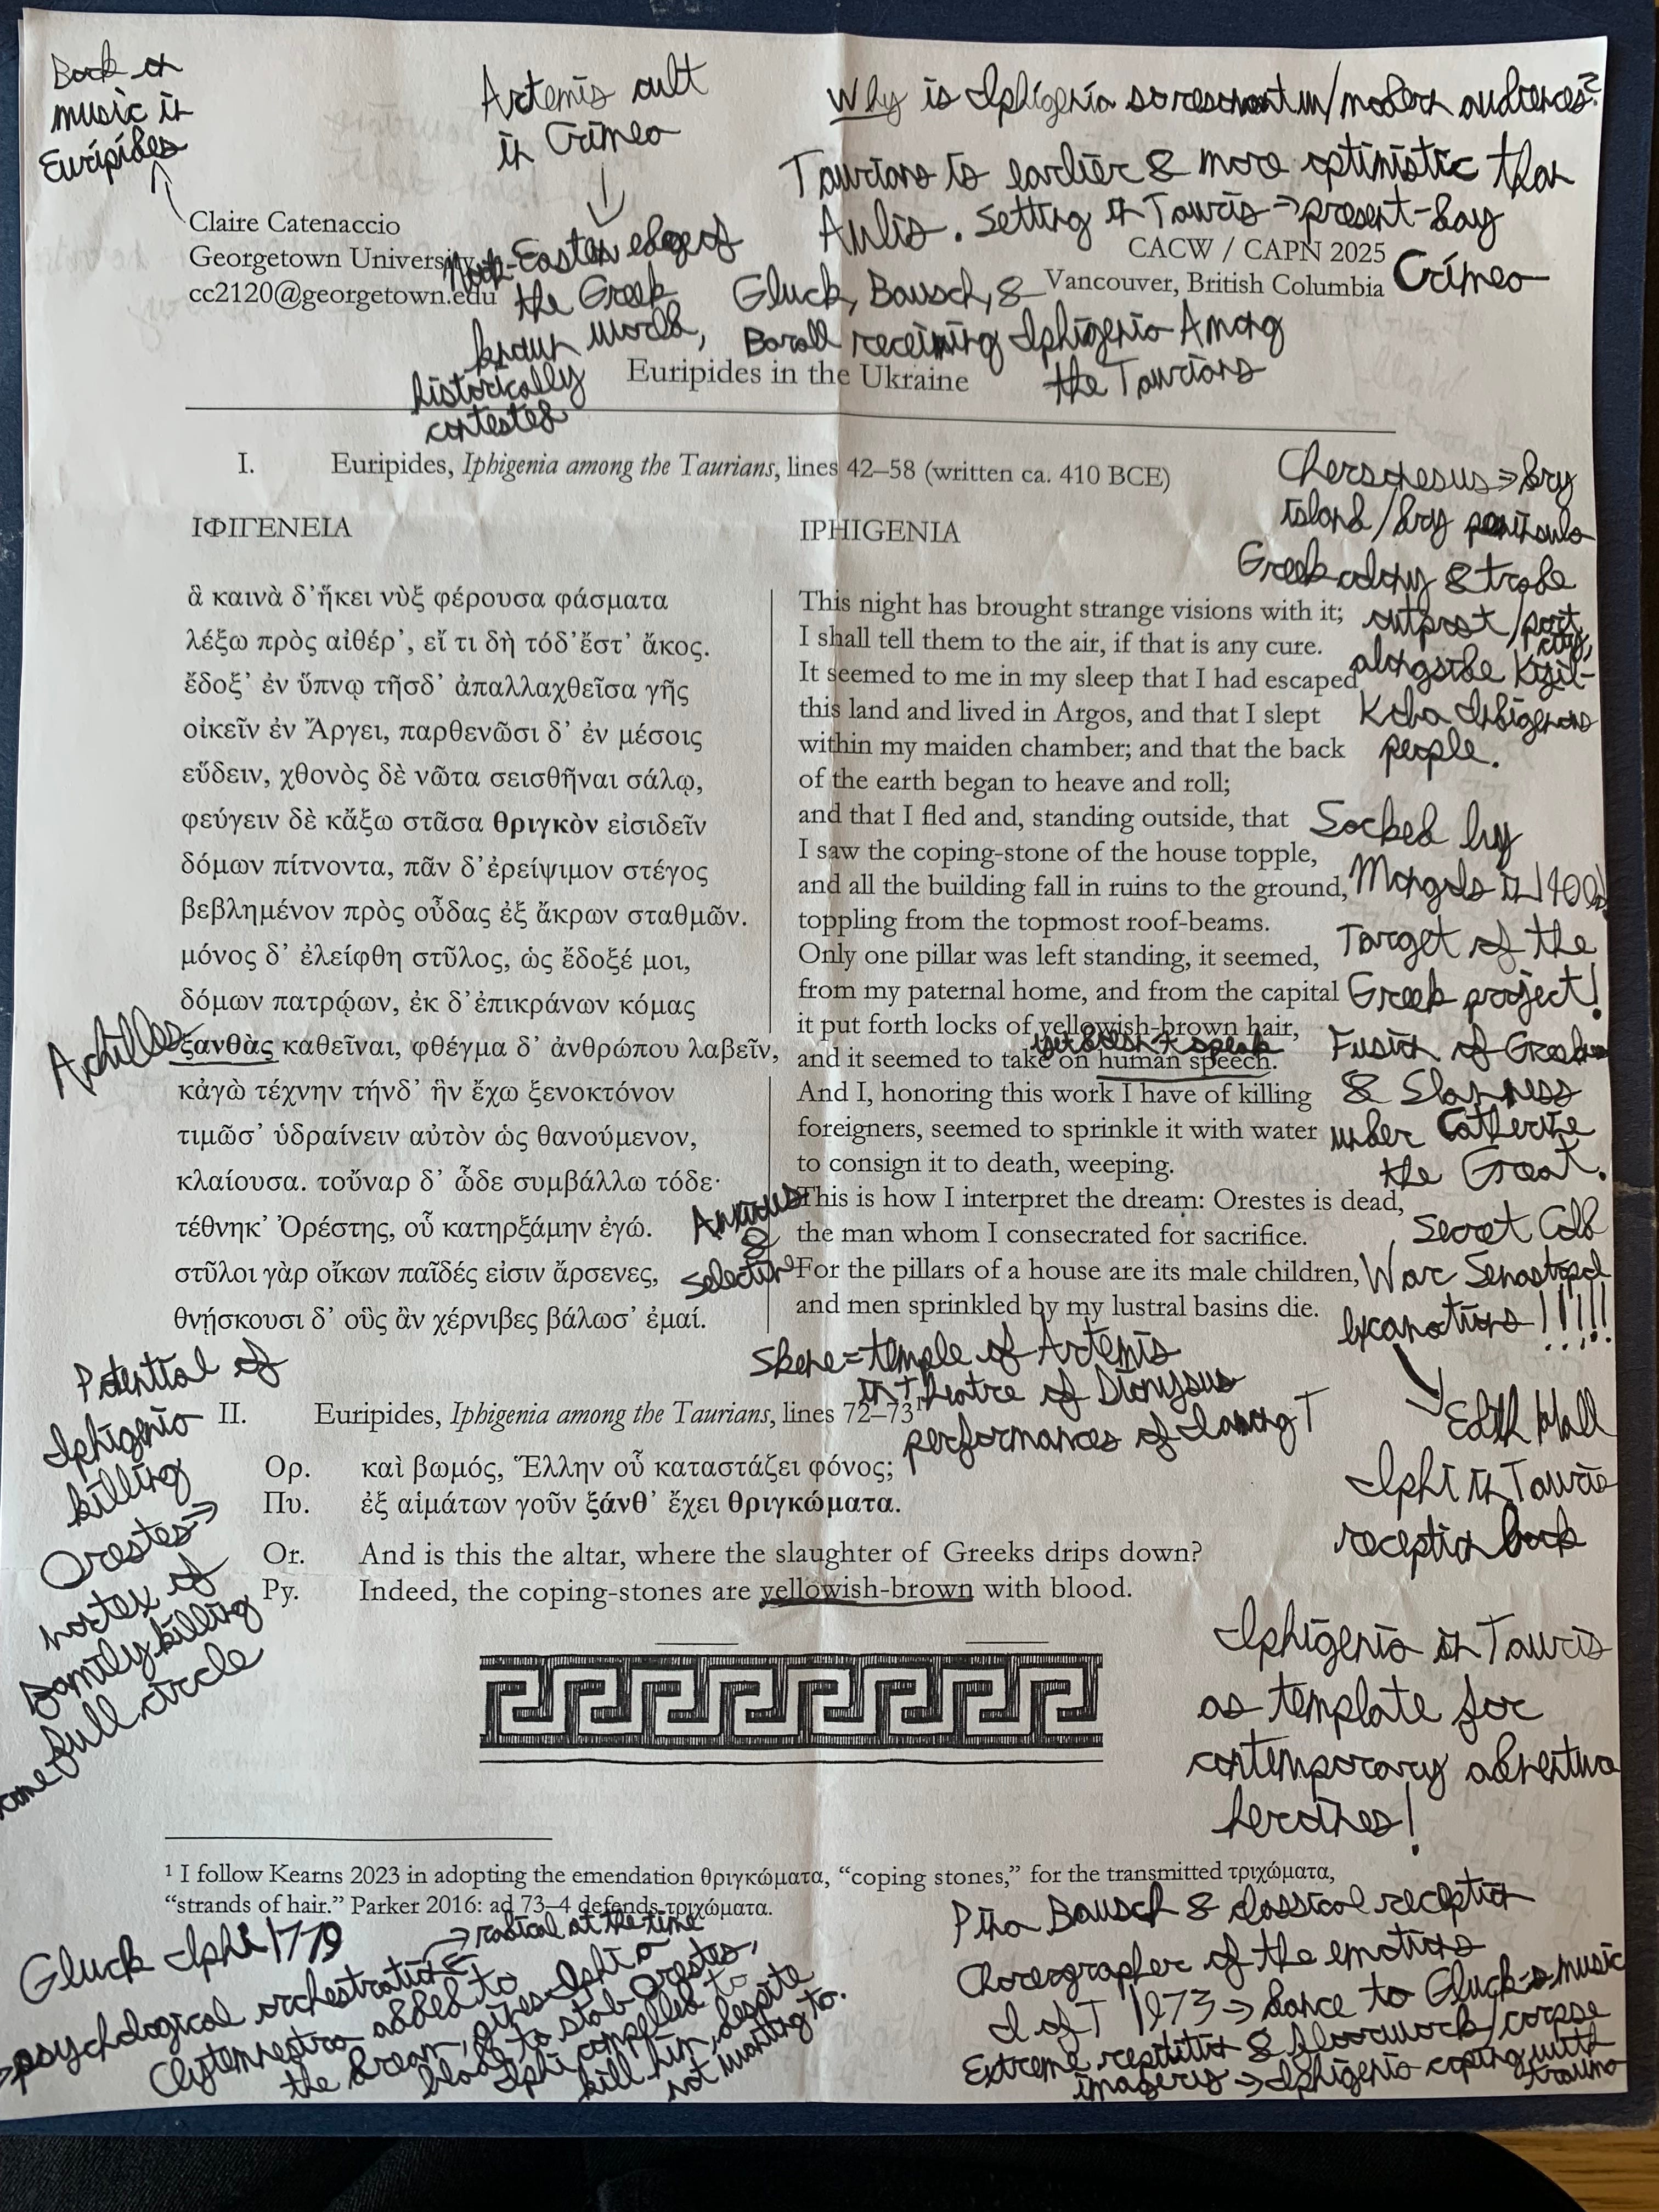 Book on
music in
Euripides
Artemis cult
in Crimea
Why is Iphigenia so resonant w/ modern audiences?
Taurians is earlier & more optimistic than
Aulis. Setting in Tauris ⇒ present-day
Crimea
Claire Catenaccio
Georgetown University
cc2120@georgetown.edu
CACW / CAPN 2025
Vancouver, British Columbia
North-Eastern edge of
the Greek
known world,
historically
contested
Gluck, Bausch, &
receiving Iphigenia Among
the Taurians
Euripides in the Ukraine
I. Euripides, Iphigenia among the Taurians, lines 42–58 (written ca. 410 BCE)
ΙΦΙΓΕΝΕΙΑ
ἃ καινὰ δ’ἥκει νὺξ φέρουσα φάσματα
λέξω πρὸς αἰθέρ’, εἴ τι δὴ τόδ’ἔστ’ ἄκος.
ἔδοξ’ ἐν ὕπνῳ τῆσδ’ ἀπαλλαχθεῖσα γῆς
οἰκεῖν ἐν Ἄργει, παρθενῶσι δ’ ἐν μέσοις
εὕδειν, χθονὸς δὲ νῶτα σεισθῆναι σάλῳ,
φεύγειν δὲ κἄξω στᾶσα θριγκὸν εἰσιδεῖν
δόμων πίτνοντα, πᾶν δ’ἐρείψιμον στέγος
βεβλημένον πρὸς οὖδας ἐξ ἄκρων σταθμῶν.
μόνος δ’ ἐλείφθη στῦλος, ὡς ἔδοξέ μοι,
δόμων πατρῴων, ἐκ δ’ἐπικράνων κόμας
ξανθὰς καθεῖναι, φθέγμα δ’ ἀνθρώπου λαβεῖν,
κἀγὼ τέχνην τήνδ’ ἣν ἔχω ξενοκτόνον
τιμῶσ’ ὑδραίνειν αὐτὸν ὡς θανούμενον,
κλαίουσα. τοὔναρ δ’ ὧδε συμβάλλω τόδε·
τέθνηκ’ Ὀρέστης, οὗ κατηρξάμην ἐγώ.
στῦλοι γὰρ οἴκων παῖδές εἰσιν ἄρσενες,
θνῄσκουσι δ’ οὓς ἂν χέρνιβες βάλωσ’ ἐμαί.
Achilles
IPHIGENIA
This night has brought strange visions with it;
I shall tell them to the air, if that is any cure.
It seemed to me in my sleep that I had escaped
this land and lived in Argos, and that I slept
within my maiden chamber; and that the back
of the earth began to heave and roll;
and that I fled and, standing outside, that
I saw the coping-stone of the house topple,
and all the building fall in ruins to the ground,
toppling from the topmost roof-beams.
Only one pillar was left standing, it seemed,
from my paternal home, and from the capital
it put forth locks of yellowish-brown hair,
yet doesn't speak
and it seemed to take on human speech.
And I, honoring this work I have of killing
foreigners, seemed to sprinkle it with water
to consign it to death, weeping.
This is how I interpret the dream: Orestes is dead,
the man whom I consecrated for sacrifice.
For the pillars of a house are its male children,
and men sprinkled by my lustral basins die.
&
selective
Chersonesus ⇒ dry
island/dry peninsula
Greek colony & trade
outpost/port
city,
alongside Kizil-
Koba indigenous
people.
Sacked by
Mongols in 1400s
Target of the
Greek project!
Fusion of Greek
& Slavness
under Catherine
the Great.
Secret Cold
War Sevastopol
excavations!!!!!
Edith Hall
Iphi in Tauris
reception book
Skene = temple of Artemis
in Theatre of Dionysus
performances of I among T
II. Euripides, Iphigenia among the Taurians, lines 72–73¹
Ορ. καὶ βωμός, Ἕλλην οὗ καταστάζει φόνος;
Πυ. ἐξ αἱμάτων γοῦν ξάνθ’ ἔχει θριγκώματα.
Or. And is this the altar, where the slaughter of Greeks drips down?
Py. Indeed, the coping-stones are yellowish-brown with blood.
Potential of
Iphigenia
killing
Orestes ⇒
vortex of
family killing
come full circle
Iphigenia in Tauris
as template for
contemporary adventure
heroines!
¹ I follow Kearns 2023 in adopting the emendation θριγκώματα, “coping stones,” for the transmitted τριχώματα,
“strands of hair.” Parker 2016: ad 73–4 defends τριχώματα.
Gluck Iphi 1779
→ radical at the time
⇒ psychological orchestration
Clytemnestra added to
the dream, gives Iphi a
blade to stab Orestes,
Iphi compelled to
kill him, despite
not wanting to.
Pina Bausch & classical reception
Choreographer of the emotions
I. of T 1973 ⇒ dance to Gluck's music
Extreme repetition & floorwork/corpse
imagery ⇒ Iphigenia coping with
trauma